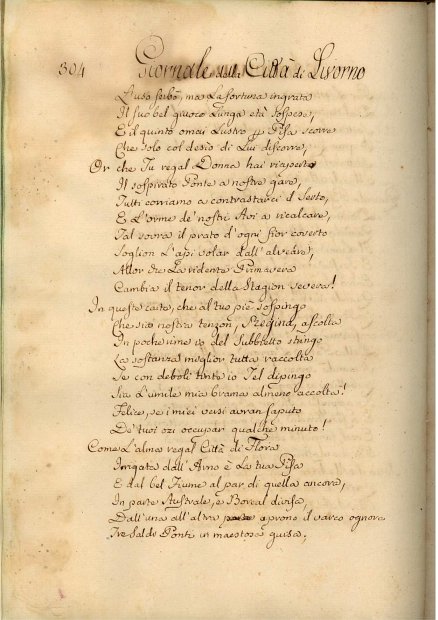 304 Giornale della Città di Livorno
L'uso serbò, ma La fortuna ingrata
Il suo bel giuoco Lunga età sospese,
E il quinto omai Lustro p Pisa scorre
Che solo col desìo di Lui discorre,
Or che Tu regal Donna hai riaperto
Il sospirato Ponte a nostre gare,
Tutti corriamo a contrastarci il Serto,
E L'orme de' nostri Avi a ricalcare,
Tal sovra il prato d'ogni fior coverto
Soglion L'api volar dall'alveare,
Allor che La ridente Primavera
Cambia il tenor della Stagion severa!
In queste carte, che al tuo piè sospingo
Che sia nostra tenzon, Regina, ascolta
In poche rime io del Subbietto stringo
La sostanza miglior tutta raccolta
Se con deboli tinte io Tel dipingo
Sia L'umile mia brama almeno accolta!
Felice, se i miei versi avran saputo
De' tuoi ozi occupar qualche minuto!
Come L'alma regal Città di Flora
Irrigata dall'Arno è La tua Pisa
E dal bel Fiume al par di quella ancora,
In parte Australe, e Boreal divisa,
Dall'una all'altra aprono il varco ognora
Tre Saldi Ponti in maestosa guisa,